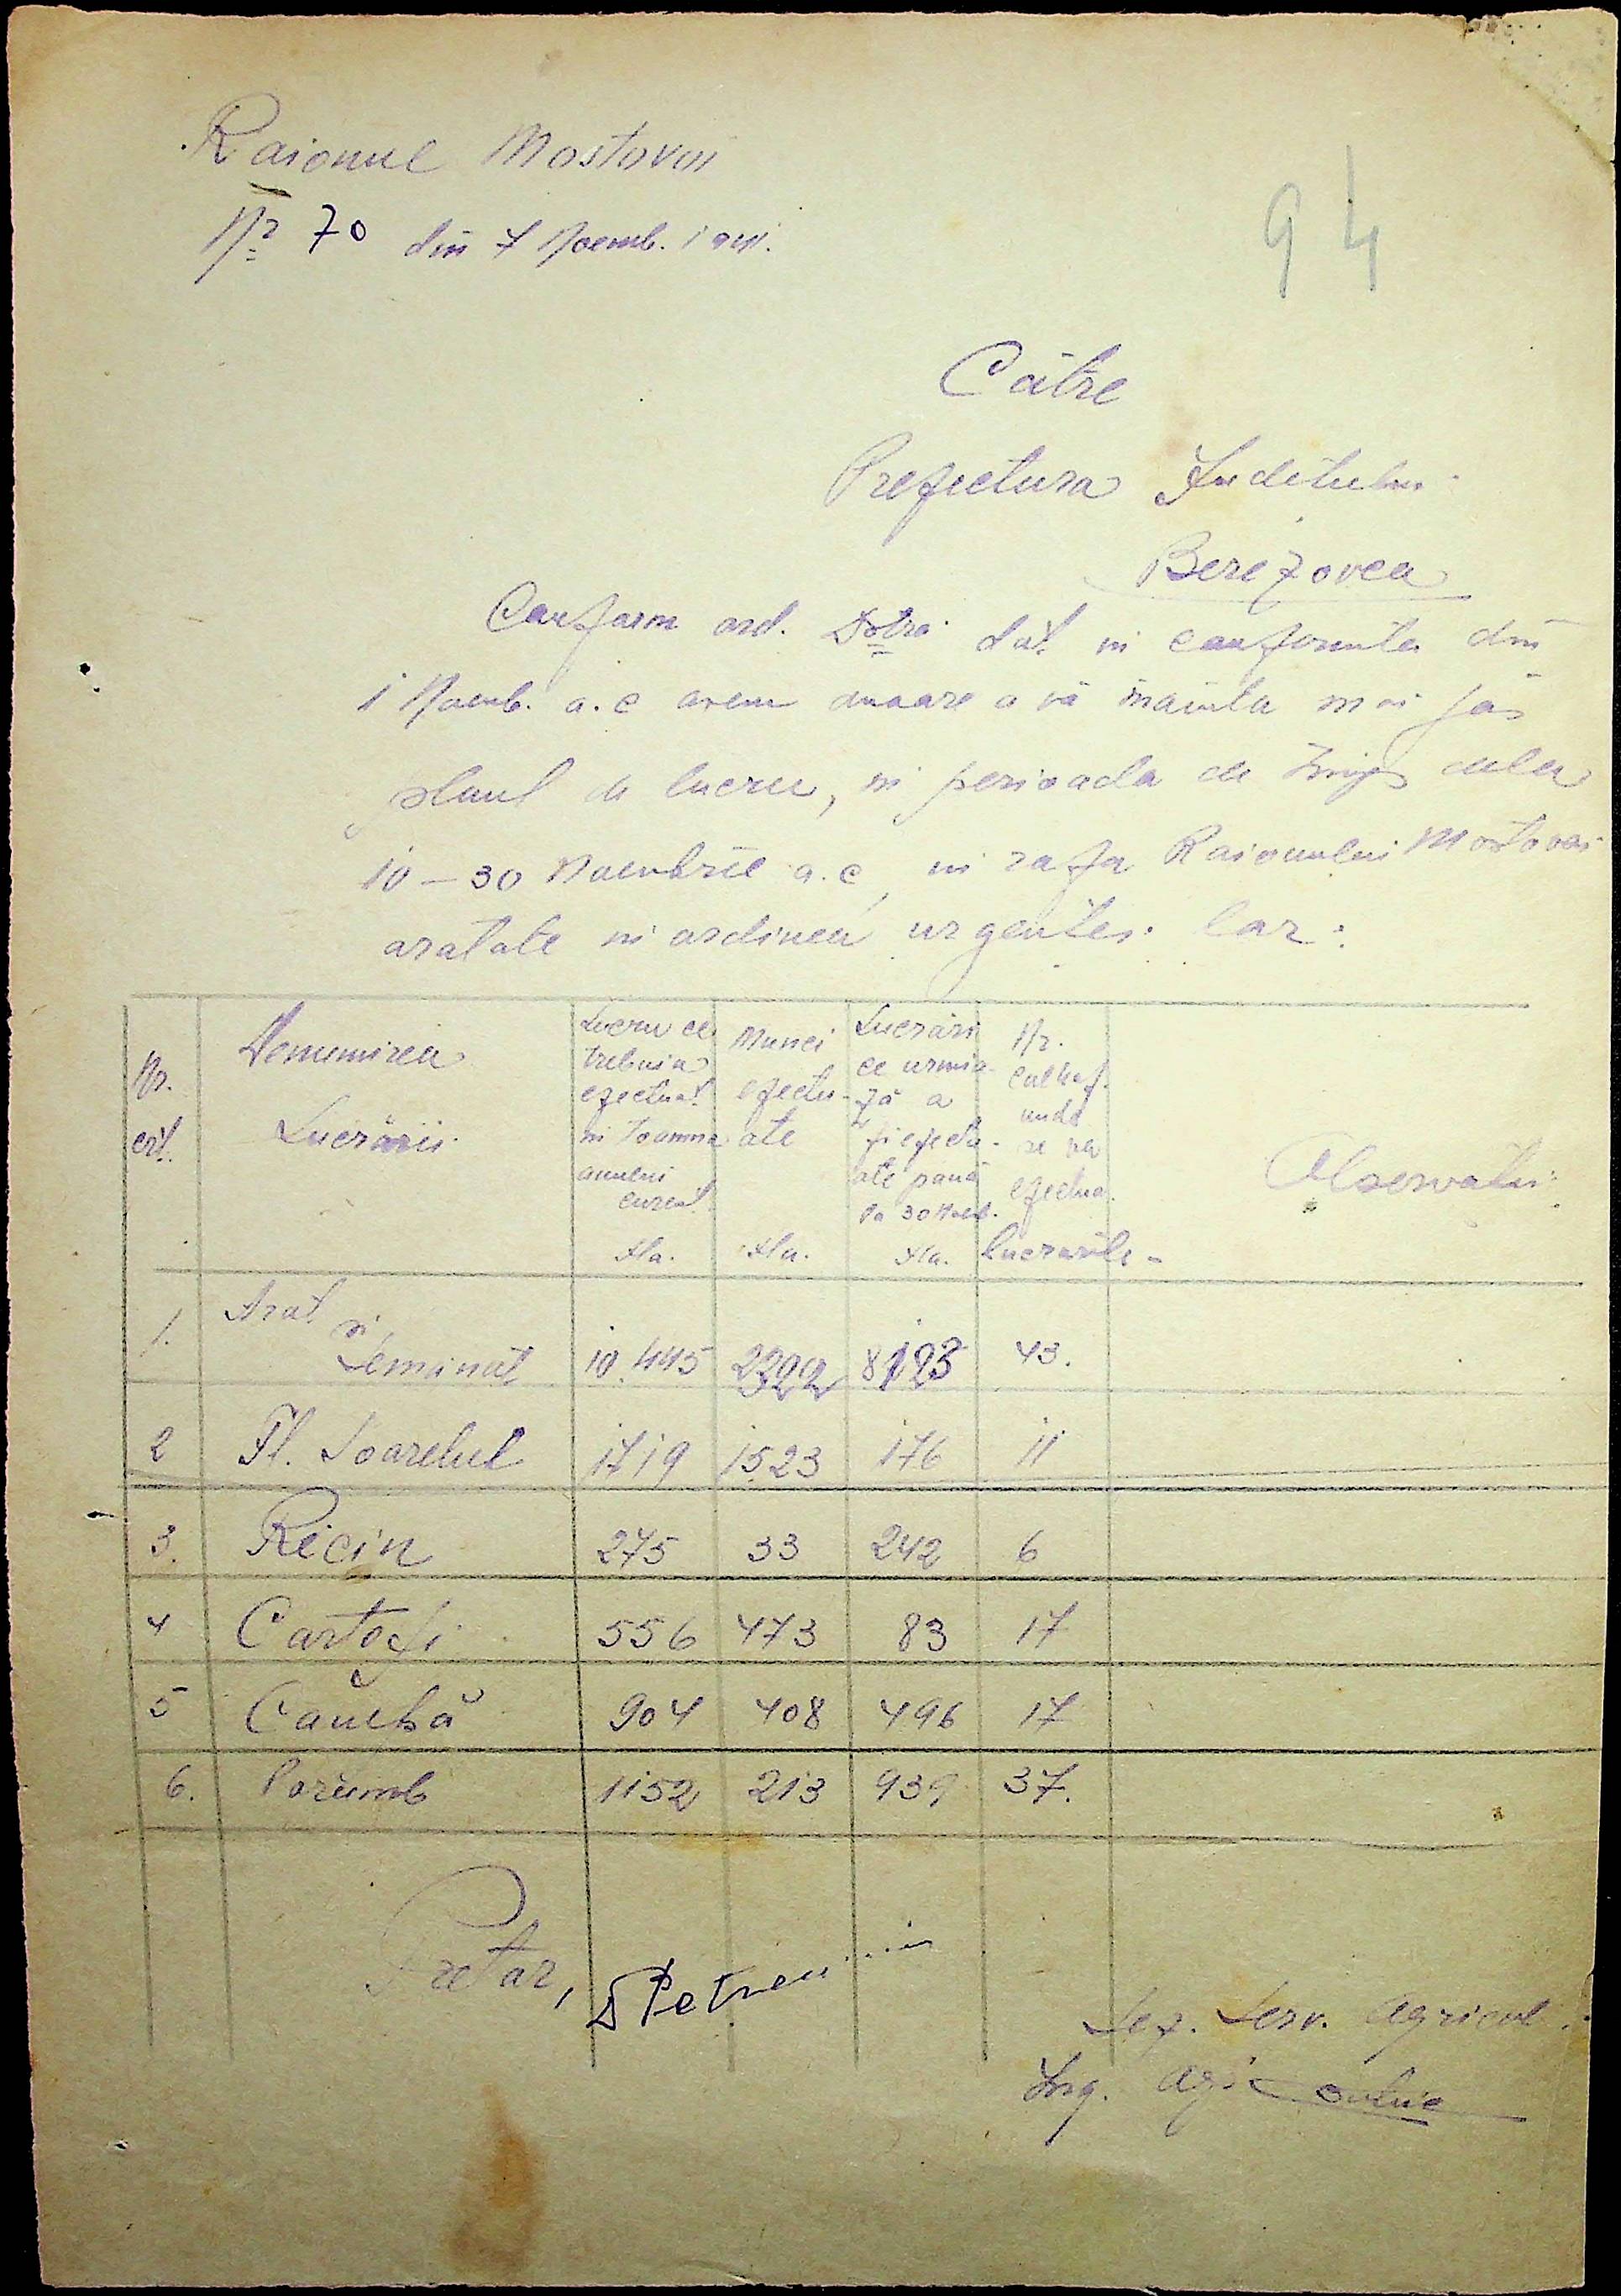 Raionul Mostovoi
Nr 70 din 7 Noemb. 1941.
94
Către
Prefectura Judetului
Berezovca
Conform ord. Dotra dat in conformitea din
1 Noemb. a.c avem onoare a vă inainta mai jos
planul de lucru, in perioada de timp dela
10 – 30 Noembrie a.c, in raza Raionului Mostovoi
aratate in ordinea urgentei lor:
Nr. crt.
Denumirea Lucrării
Lucru ce trebuia efectuat in toamna anului curent Ha.
Munci efectuate Ha.
Lucrări ce urmia-ză a fi efectu-ate pană la 30 Noeb. Ha.
Nr. colhoz. unde se va efectua lucrările -
Observatii
1. Arat si Semănat 10.445 2322 8123 43.
2 Fl. Soarelui 1719 1523 176 11
3. Ricin 275 33 242 6
4 Cartofi 556 473 83 17
5 Cânepă 904 408 496 17
6. Porumb 1152 213 939 37.
Pretor,
Sef. Serv. Agricol
Ing. Agr.